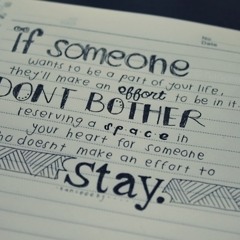 No:
Date
if someone
wants to be a part of your life,
they'll make an effort to be in it
DONT BOTHER
reserving a space in
your heart for someone
ho doesnt make an effort to
stay.